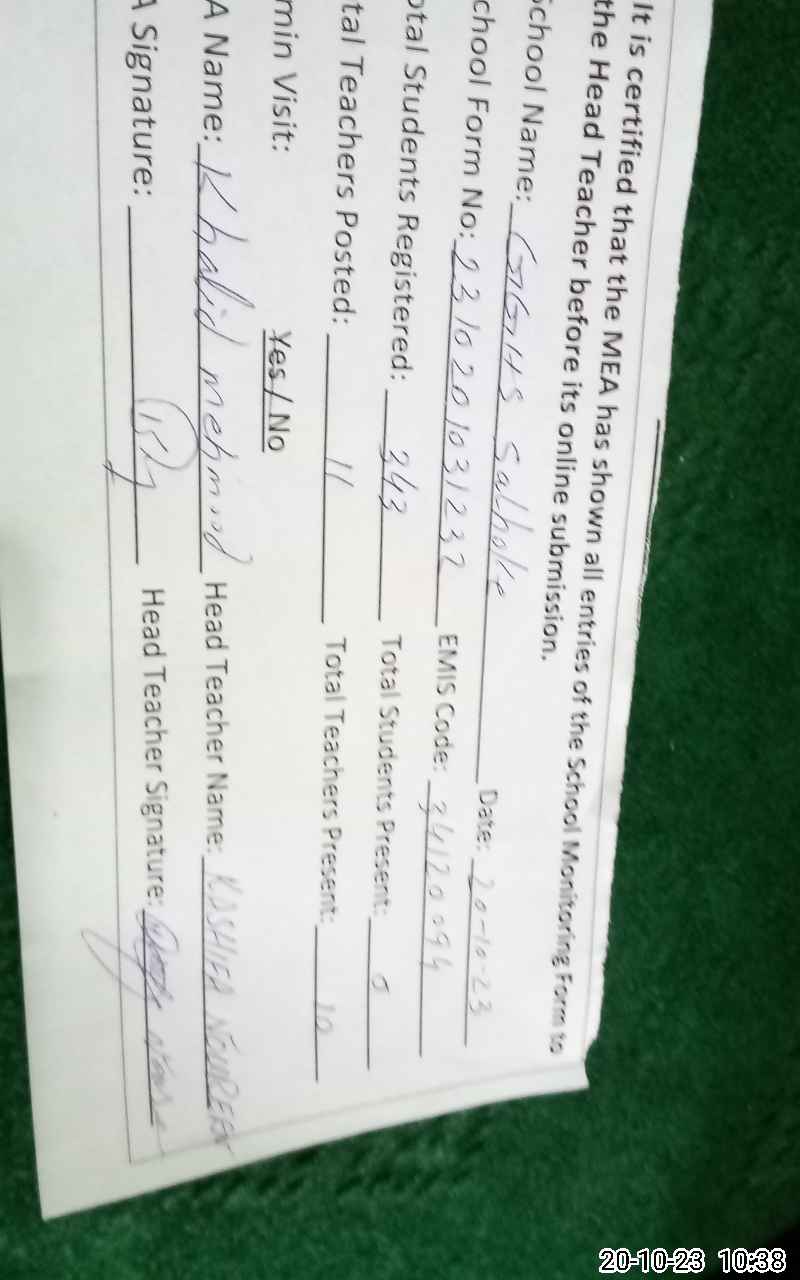 It is certified that the MEA has shown all entries of the School Monitoring Form to
the Head Teacher before its online submission.
School Name: GGHS Salhoke Date: 20-10-23
chool Form No: 2310201031232 EMIS Code: 34120094
otal Students Registered: 343 Total Students Present: 0
tal Teachers Posted: 11 Total Teachers Present: 10
min Visit: Yes / No
A Name: Khalid mehmood Head Teacher Name: KASHIFA NOUREEN
A Signature: Head Teacher Signature:
20-10-23 10:38